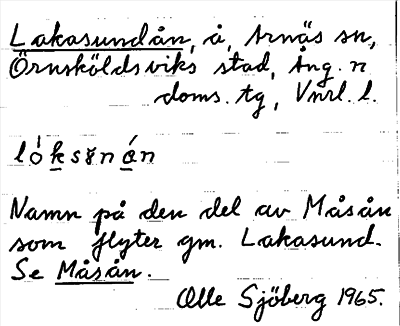 Lakasundån, å, Arnäs sn,
Örnsköldsviks stad, Ång. n
doms. tg, Vnrl. l.
lóksn án
Namn på den del av Måsån
som flyter gm. Lakasund.
Se Måsån.
Olle Sjöberg 1965.